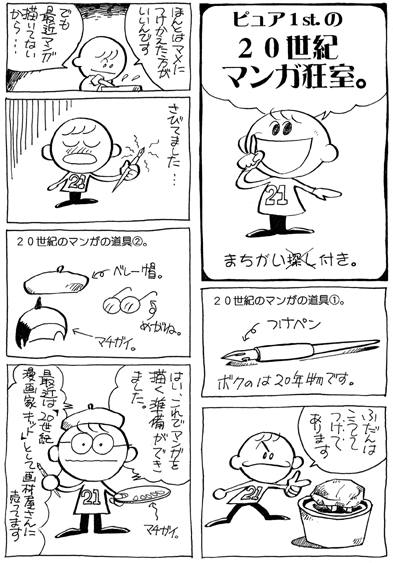 ピュア1st.の
20世紀
マンガ狂室。
21
まちがい探し付き。
20世紀のマンガの道具①。
つけペン
ボクのは20年物です。
ふだんは
こうして
つけて
あります
21
ほんとはマメに
つけかえた方が
いいんです
でも
最近マンガ
描いてない
から…
さびてました…
21
20世紀のマンガの道具②。
ベレー帽。
めがね。
マチガイ。
はい、これでマンガを
描く準備ができ
ました。
21
マチガイ。
最近は「20世紀
漫画家キット」として画材屋さんに
売ってます